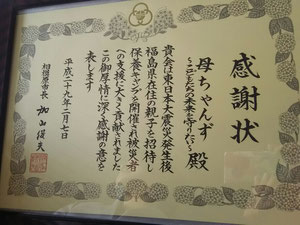 感謝状
母ちゃんず 殿
～こどもたちの未来を守りたい～
貴会は東日本大震災発生後
福島県在住の親子を招待し
保養キャンプを開催され被災者
への支援に大きく貢献されました
この御厚情に深く感謝の意を
表します
平成二十九年二月七日
相模原市長 加山俊夫